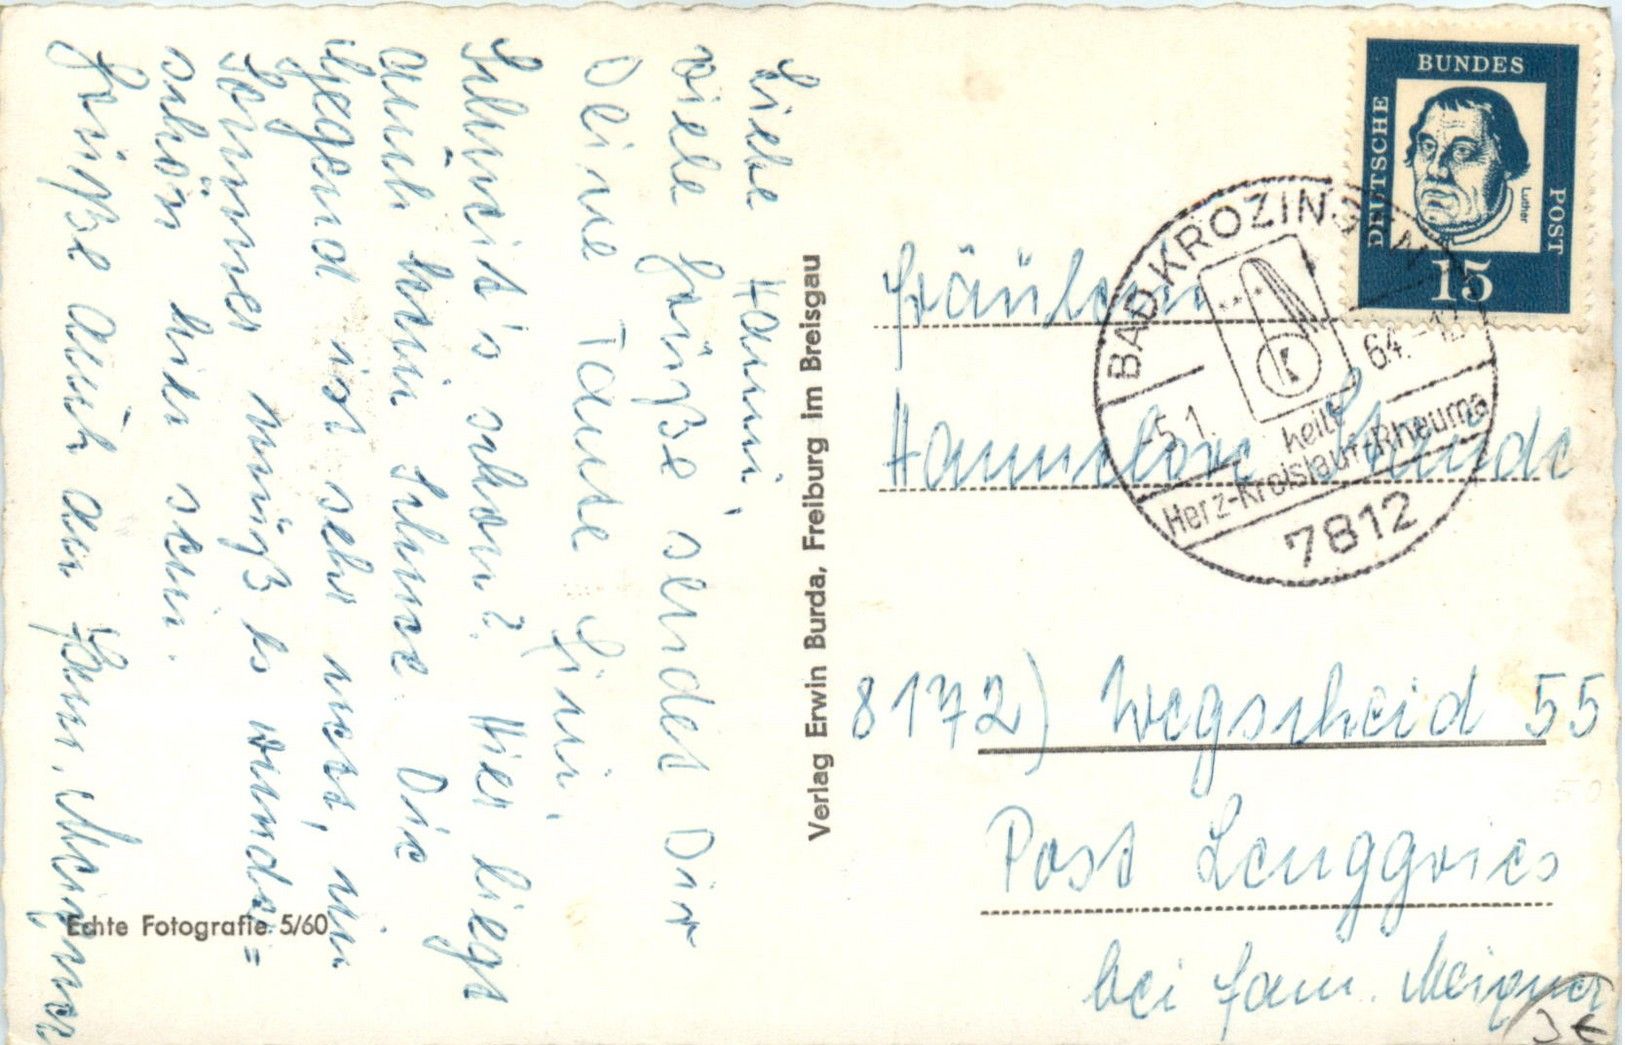 Liebe Hanni,
viele Grüße sendet Dir
Deine Tante Gini.
Schneit's schon? Hier liegt
auch kein Schnee. Die
Gegend ist sehr nett, im
Sommer muß es wunder=
schön hier sein.
Grüße auch an Fam. Meixner
Echte Fotografie 5/60
Verlag Erwin Burda, Freiburg im Breisgau
DEUTSCHE BUNDES POST
Luther
15
BAD KROZINGEN
-5.1. 64.-12
K
heilt
Herz-Kreislauf-Rheuma
7812
Fräulein
Hannelore
8172) Wegscheid 55
Post Lenggries
bei Fam. Meixner
3 €